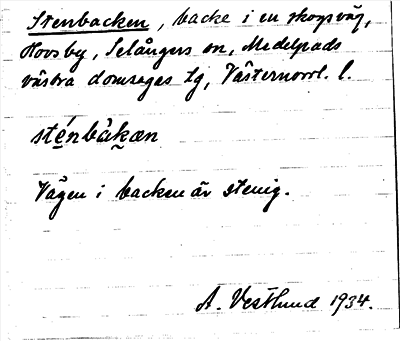 Stenbacken, backe i en skogsväg,
Hovsby, Selångers sn, Medelpads
västra domsagas tg, Västernorrl. l.
sténbàkæn
Vägen i backen är stenig.
A. Vestlund 1934.